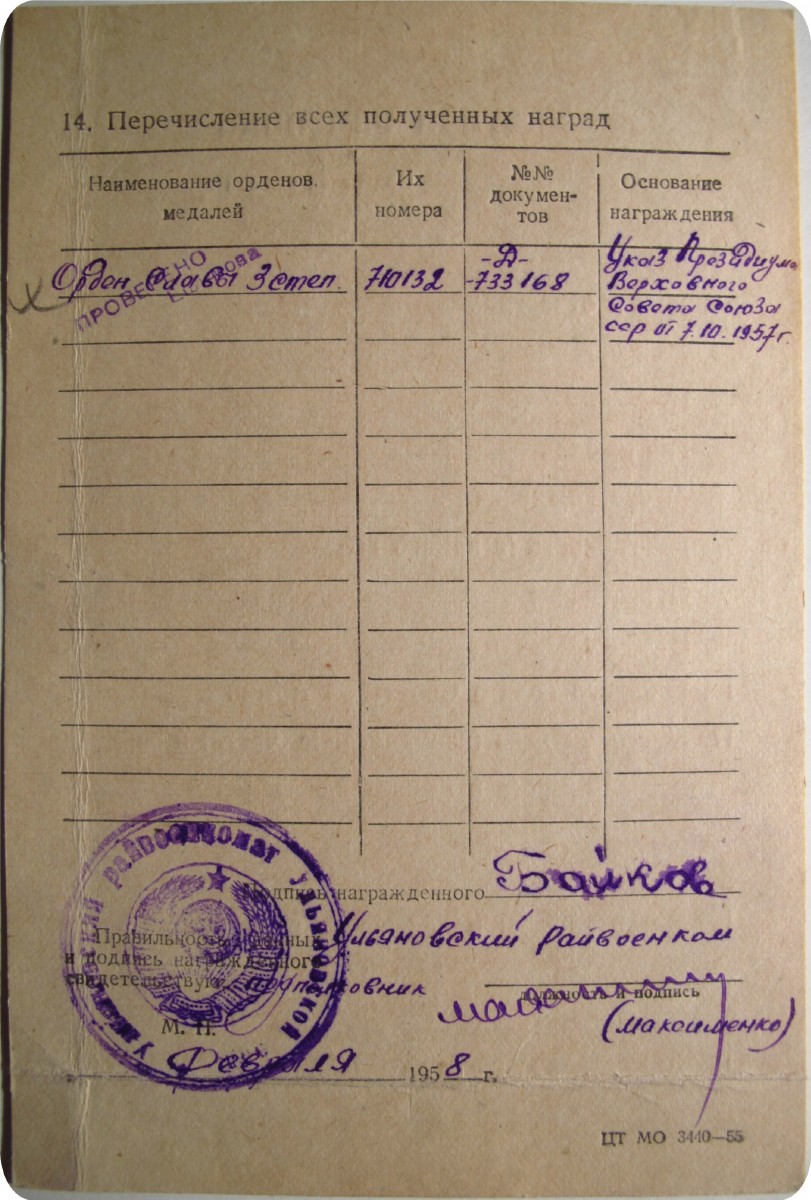 14. Перечисление всех полученных наград
Наименование орденов,
медалей
Их
номера
№№
докумен-
тов
Основание
награждения
Орден Славы 3 степ.
710132
-Д-
-733168
Указ Президиума
Верховного
Совета Союза
сср от 7.10.1957г.
ПРОВЕРЕНО
Подпись награжденного Байков
Правильность данных
и подпись награжденного
свидетельствую
Ульяновский райвоенком
подполковник
должность и подпись
(Максименко)
М. П.
Февраля 1958 г.
Ульяновский райвоенкомат Ульяновской
ЦТ МО 3440—55